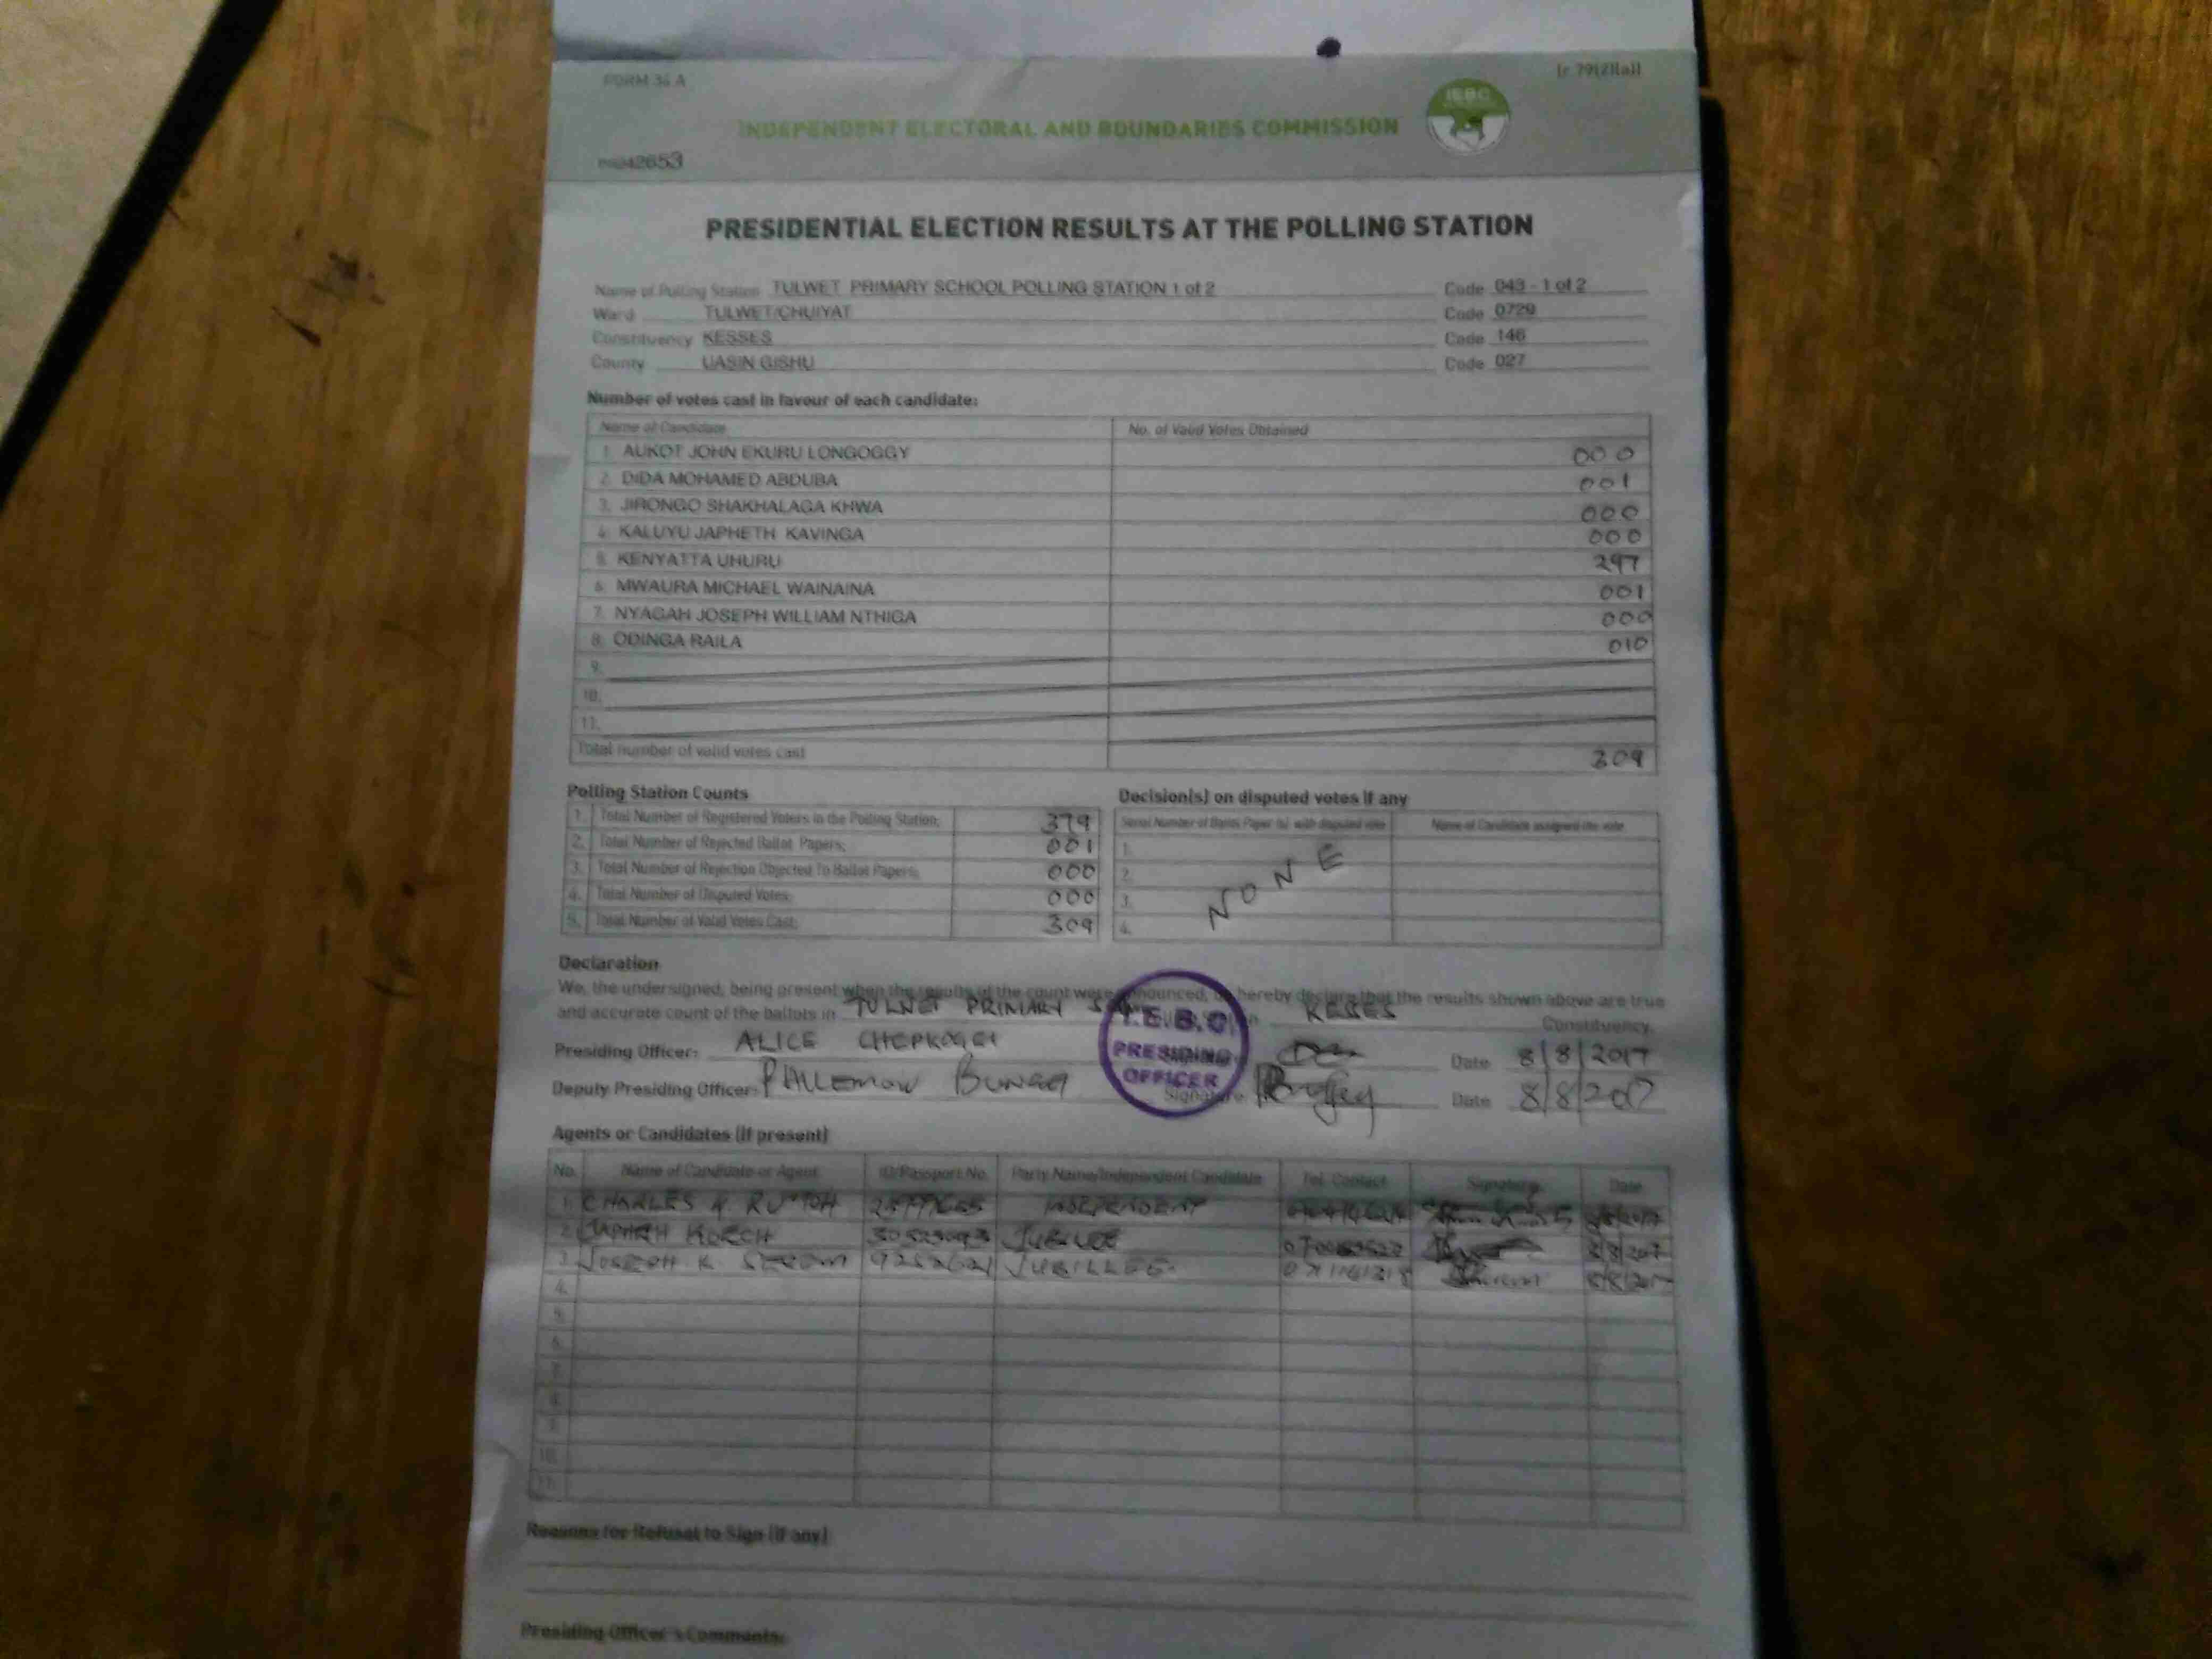 FORM 34 A
[r 79(2)(a)]
IEBC
INDEPENDENT ELECTORAL AND BOUNDARIES COMMISSION
42653
PRESIDENTIAL ELECTION RESULTS AT THE POLLING STATION
Name of Polling Station TULWET PRIMARY SCHOOL POLLING STATION 1 of 2 Code 043 - 1 of 2
Ward TULWET/CHUIYAT Code 0729
Constituency KESSES Code 146
County UASIN GISHU Code 027
Number of votes cast in favour of each candidate:
Name of Candidate No. of Valid Votes Obtained
1. AUKOT JOHN EKURU LONGOGGY 000
2. DIDA MOHAMED ABDUBA 001
3. JIRONGO SHAKHALAGA KHWA 000
4. KALUYU JAPHETH KAVINGA 000
5. KENYATTA UHURU 297
6. MWAURA MICHAEL WAINAINA 001
7. NYAGAH JOSEPH WILLIAM NTHIGA 000
8. ODINGA RAILA 010
9.
10.
11.
Total number of valid votes cast 309
Polling Station Counts
1. Total Number of Registered Voters in the Polling Station; 379
2. Total Number of Rejected Ballot Papers; 001
3. Total Number of Rejection Objected To Ballot Papers; 000
4. Total Number of Disputed Votes; 000
5. Total Number of Valid Votes Cast; 309
Decision(s) on disputed votes if any
Serial Number of Ballot Paper (s) with disputed vote Name of Candidate assigned the vote
1.
2.
3.
4.
NONE
Declaration
We, the undersigned, being present when the results of the count were announced, do hereby declare that the results shown above are true
and accurate count of the ballots in TULWET PRIMARY KESSES Constituency.
I.E.B.C
PRESIDING
OFFICER
Presiding Officer: ALICE CHEPKOGEI Date 8/8/2017
Deputy Presiding Officer: Signature Date 8/8/2017
Agents or Candidates (if present)
No. Name of Candidate or Agent ID/Passport No. Party Name/Independent Candidate Tel. Contact Signature Date
1. CHARLES K. RUTTOH INDEPENDENT
2. KOECH JUBILEE 8/8/2017
3. JOSEPH K. JUBILLEE 8/8/2017
4.
5.
6.
7.
8.
9.
10.
11.
Reasons for Refusal to Sign (if any)
Presiding Officer's Comments: